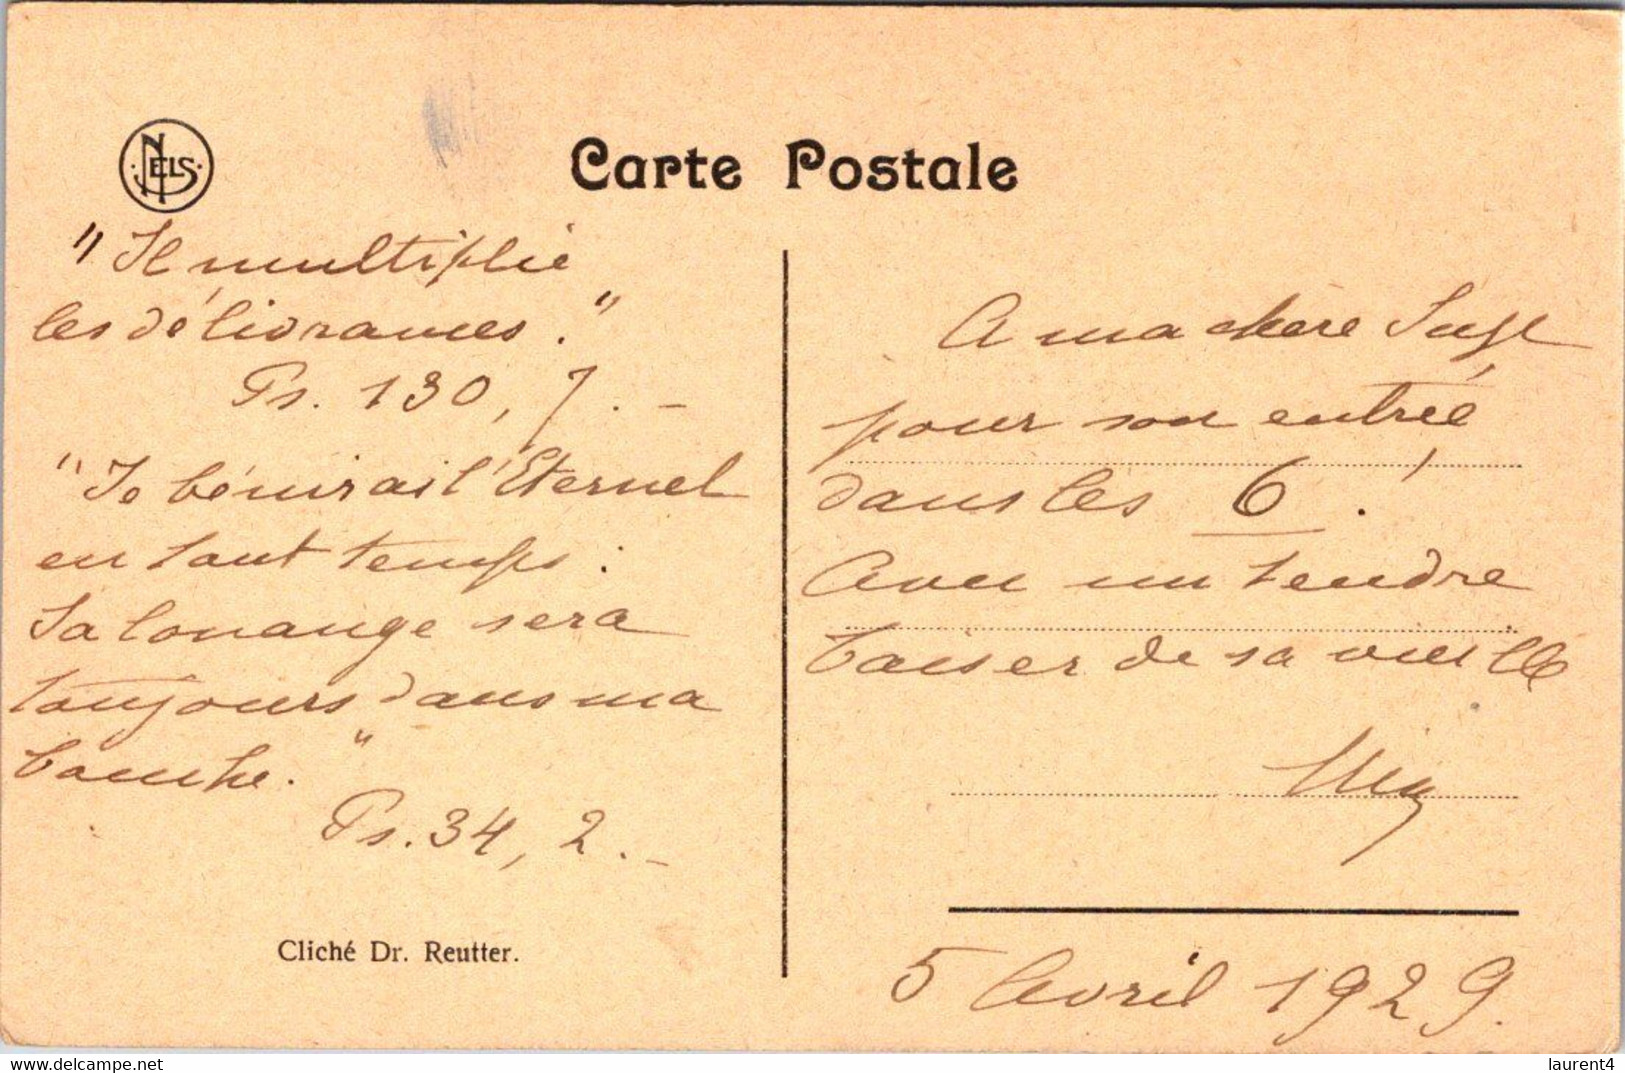 NELS
Carte Postale
"Il multiplie
les délivrances."
Ps. 130, 7. -
"Je bénirai l'Eternel
en tout temps :
Sa louange sera
toujours dans ma
bouche."
Ps. 34, 2. -
Cliché Dr. Reutter.
A ma chère
pour son entrée
dans les 6 !
Avec un tendre
baiser de sa vieille
5 Avril 1929.
laurent4